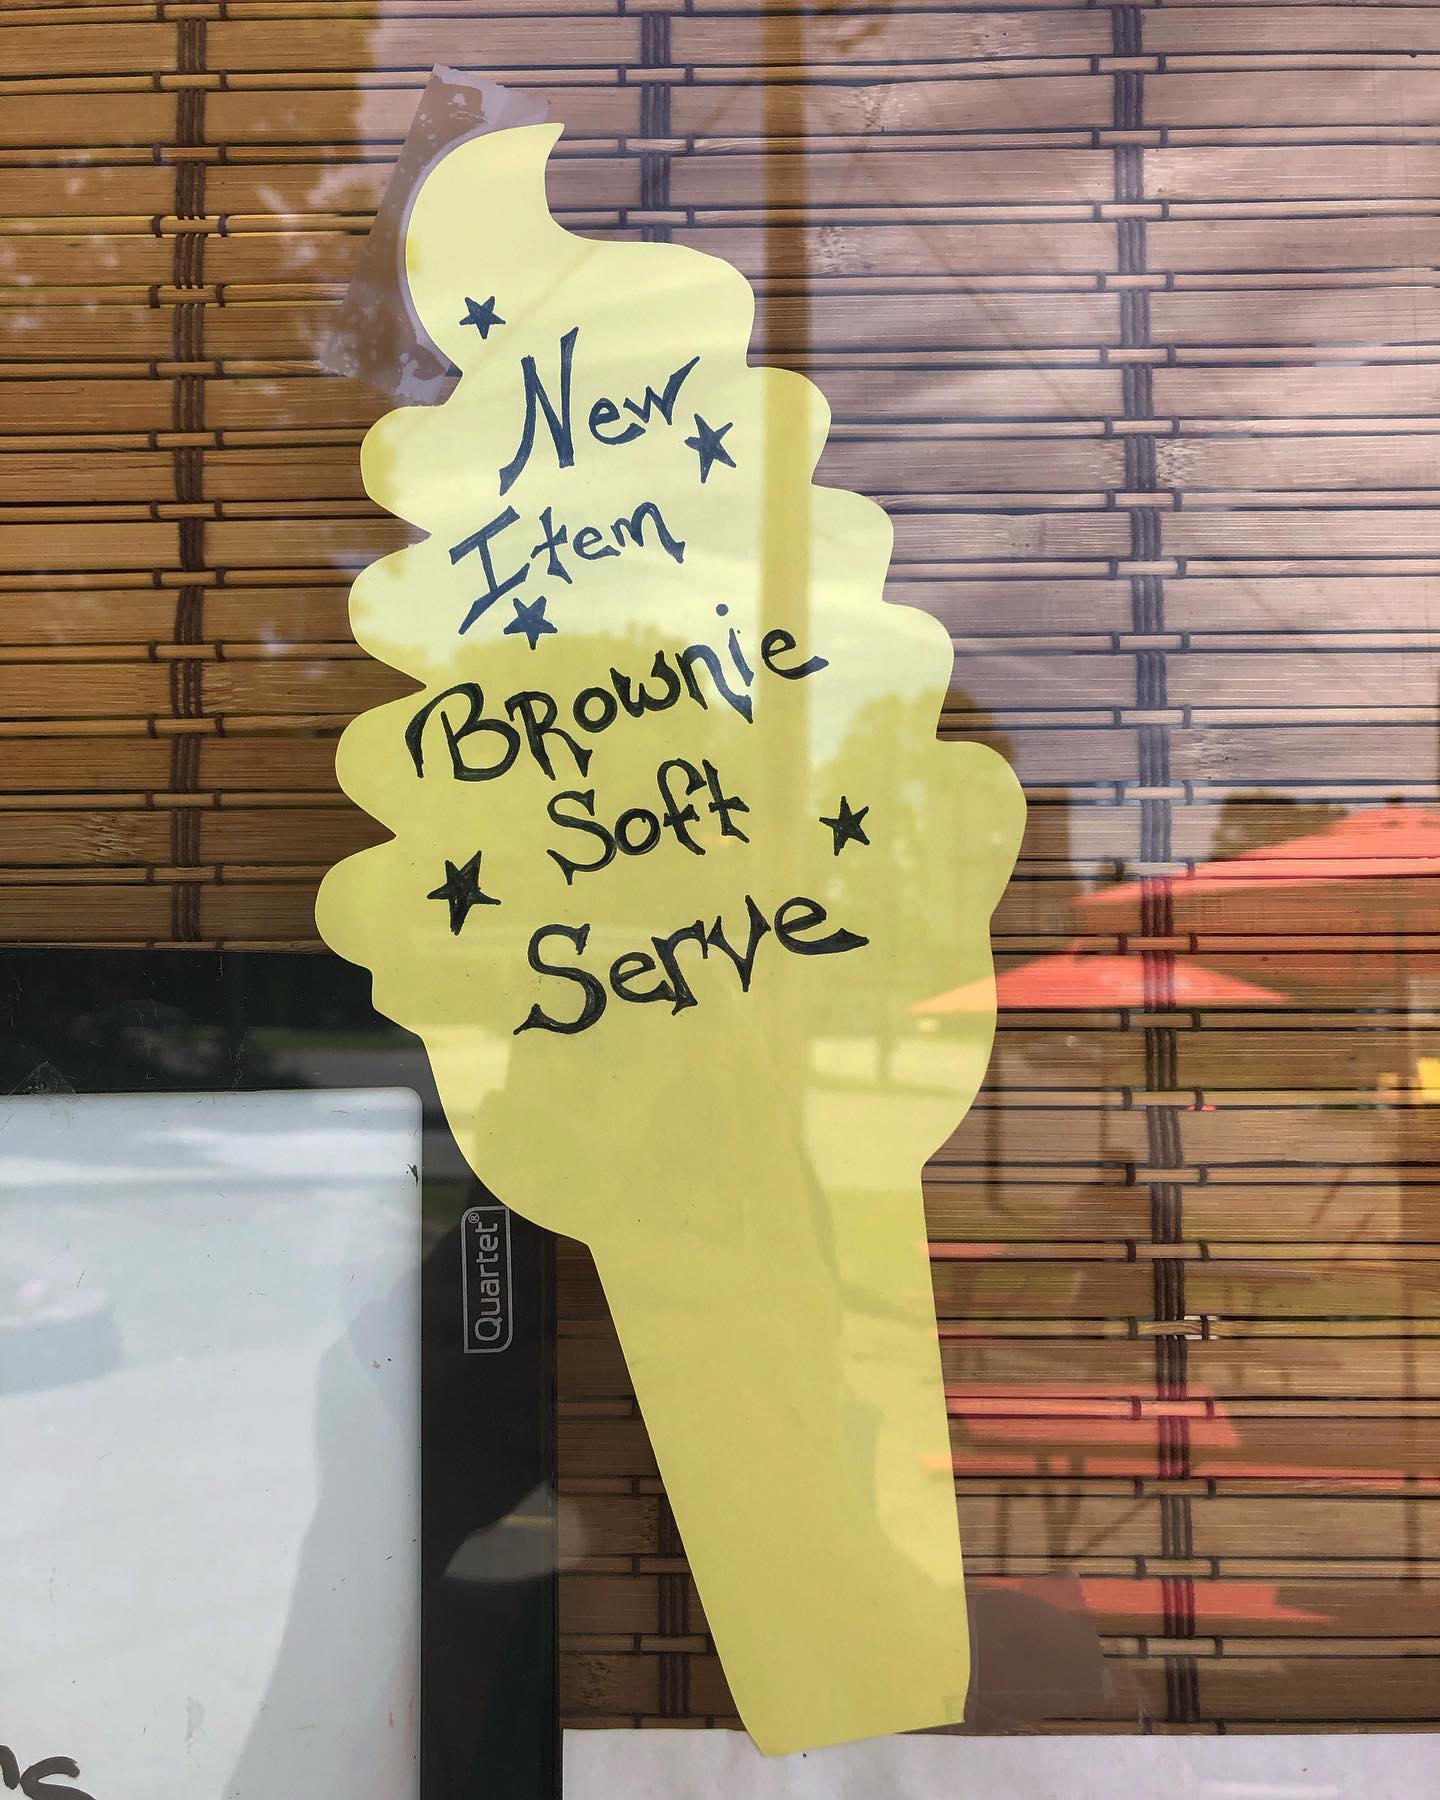 New
Item
Brownie
Soft
Serve
Quartet®